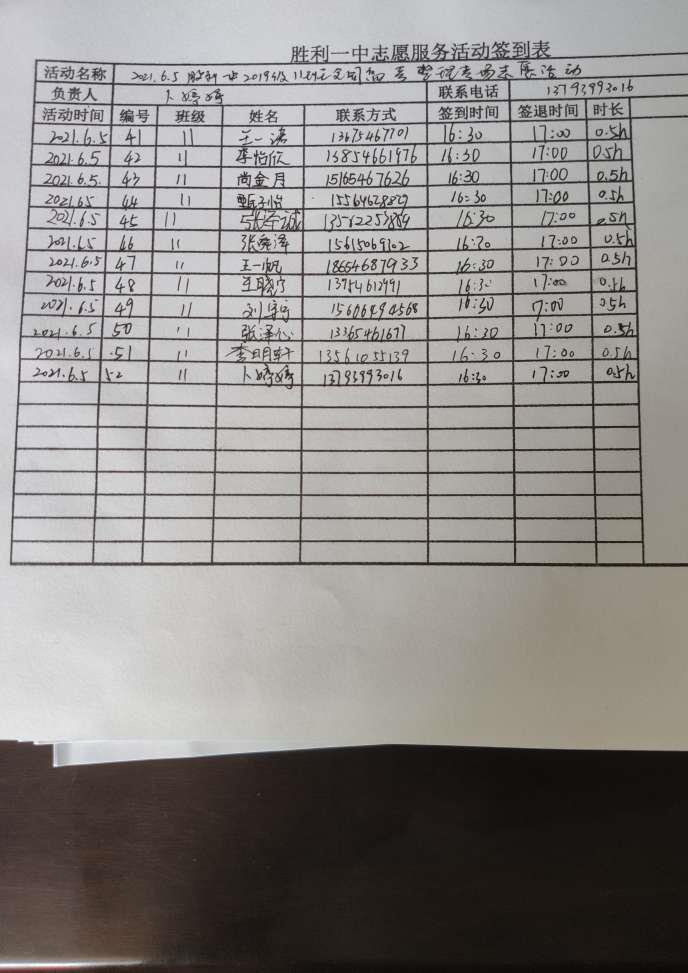 胜利一中志愿服务活动签到表
活动名称 2021.6.5 胜利一中2019级11班 考场 活动
负责人 卜婷婷 联系电话 13793993016
活动时间 编号 班级 姓名 联系方式 签到时间 签退时间 时长
2021.6.5 41 11 王一诺 13675467701 16:30 17:00 0.5h
2021.6.5 42 11 李怡欣 13854661976 16:30 17:00 0.5h
2021.6.5. 43 11 尚金月 15165467626 16:30 17:00 0.5h
2021.6.5 44 11 甄子怡 16:30 17:00 0.5h
2021.6.5 45 11 16:30 17:00 0.5h
2021.6.5 46 11 张舜泽 16:30 17:00 0.5h
2021.6.5 47 11 王一帆 18654687933 16:30 17:00 0.5h
2021.6.5 48 11 16:30 17:00 0.5h
2021.6.5 49 11 15606494568 16:30 17:00 0.5h
2021.6.5 50 11 张泽心 13365461677 16:30 17:00 0.5h
2021.6.5 51 11 李明轩 13561055139 16:30 17:00 0.5h
2021.6.5 52 11 卜婷婷 13793993016 16:30 17:00 0.5h